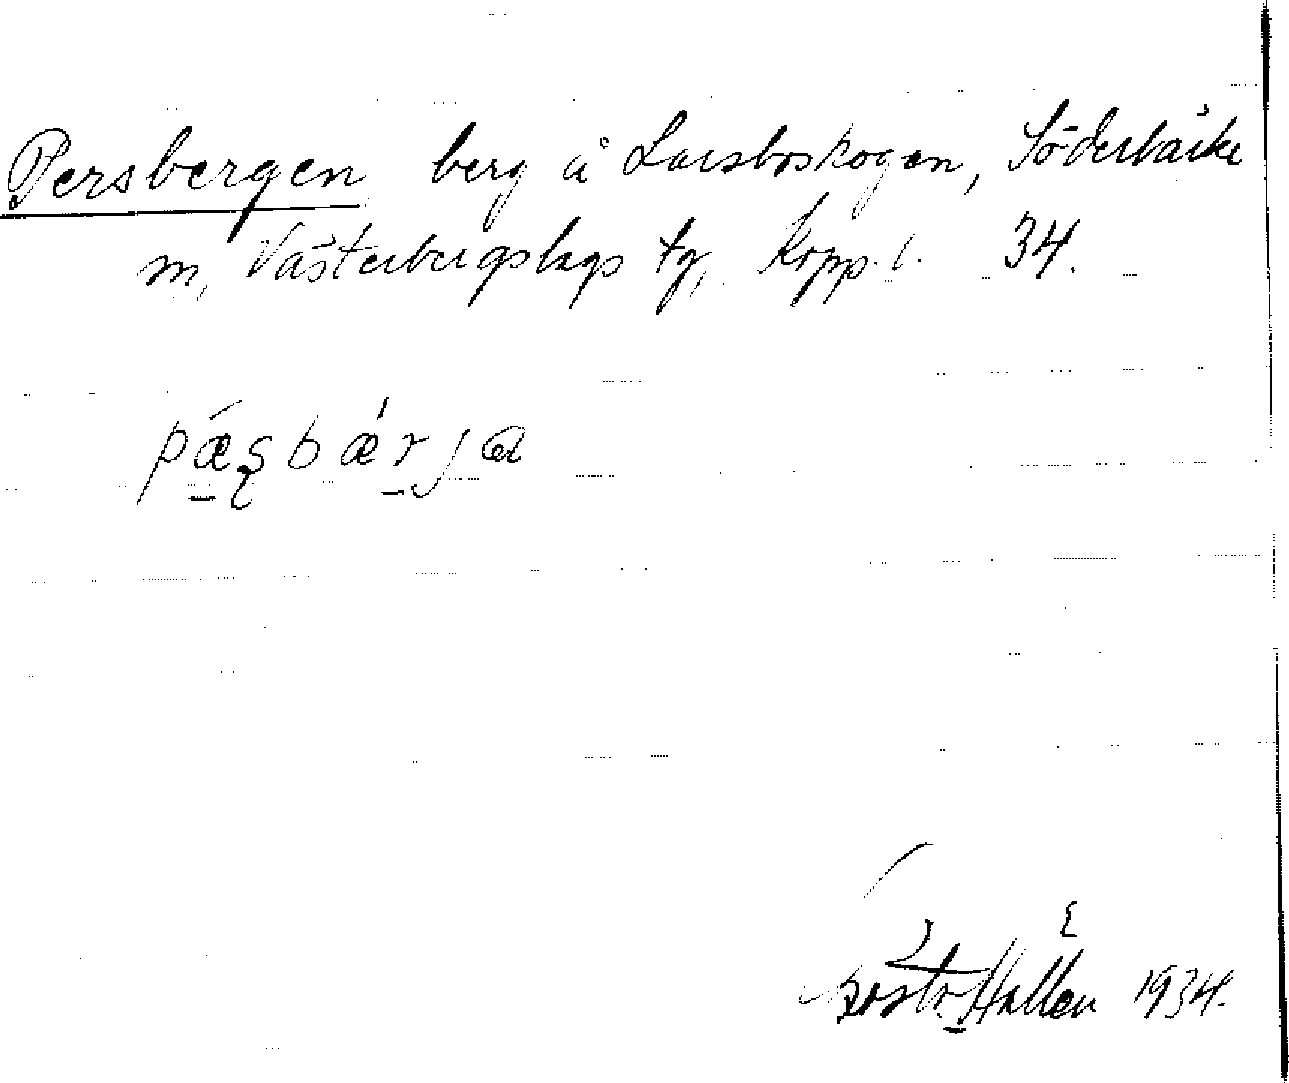 Persbergen berg å Larsboskogen, Söderbärke
m, Västerbergslags tg, Kopp. l. 34.
pæʂbærja
Hallén 1934.